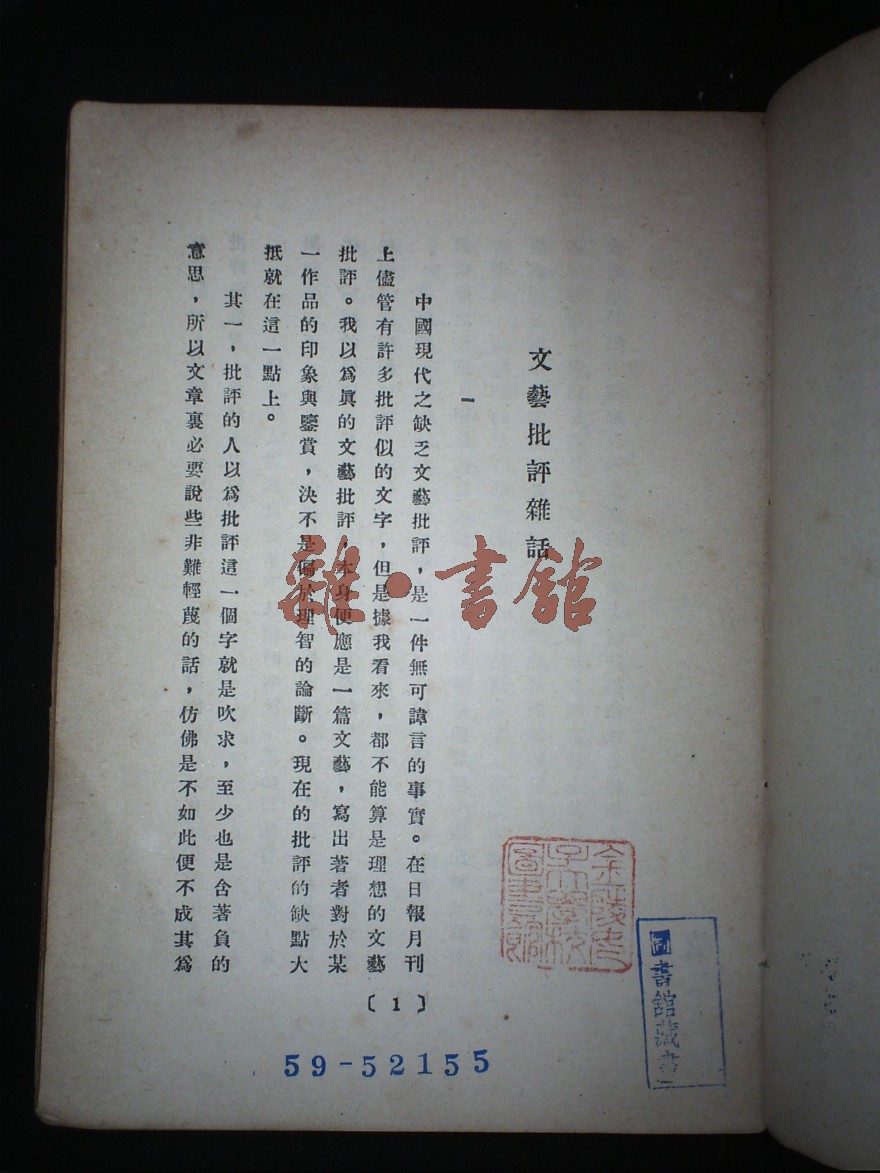 文藝批評雜話
一
中國現代之缺乏文藝批評，是一件無可諱言的事實。在日報月刊
上儘管有許多批評似的文字，但是據我看來，都不能算是理想的文藝
批評。我以爲眞的文藝批評，本身便應是一篇文藝，寫出著者對於某
一作品的印象與鑒賞，決不是偏於理智的論斷。現在的批評的缺點大
抵就在這一點上。
其一，批評的人以爲批評這一個字就是吹求，至少也是含著負的
意思，所以文章裏必要說些非難輕蔑的話，仿佛是不如此便不成其爲
〔1〕
雜·書館
圖書館藏書
59-52155